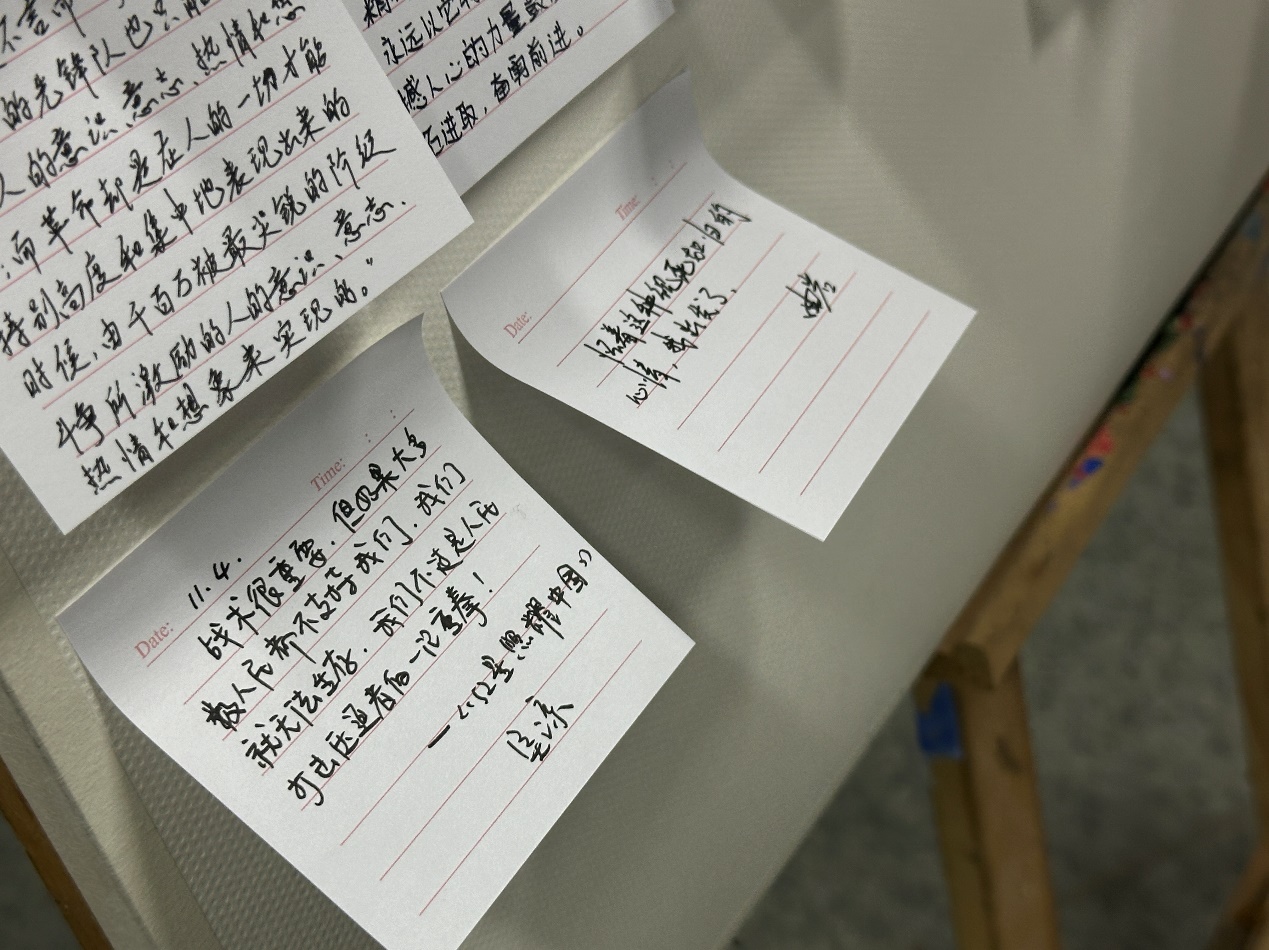 的先锋队也只能
人的意识、意志、热情和想
而革命却是在人的一切才能
特别高度和集中地表现出来的
时候,由千百万被最尖锐的阶级
斗争所激励的人的意识、意志、
热情和想象来实现的。”
永远以它
撼人心的力量鼓
进取,奋勇前进。
Time: :
Date:
怀着这种视死如归的
心情,我出发了。
Time: : :
Date: 11.4.
战术很重要,但如果大多
数人民都不支持我们,我们
就无法生存。我们不过是人民
打击压迫者的一记重拳!
—《红星照耀中国》